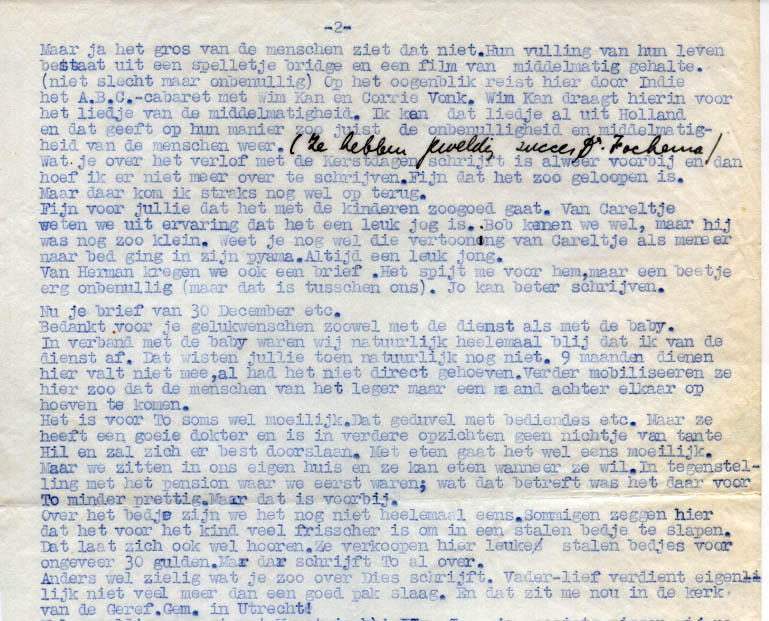 -2-
Maar ja het gros van de menschen ziet dat niet.Hun vulling van hun leven
bestaat uit een spelletje bridge en een film van middelmatig gehalte.
(niet slecht maar onbenullig) Op het oogenblik reist hier door Indie
het A.B.C.-cabaret met Wim Kan en Corrie Vonk. Wim Kan draagt hierin voor
het liedje van de middelmatigheid. Ik ken dat liedje al uit Holland
en dat geeft op hun manier zoo juist de onbenulligheid en middelmatig-
heid van de menschen weer. (Ze hebben geweldig succes Dr. Fockema)
Wat je over het verlof met de Kerstdagen schrijft is alweer voorbij en dan
hoef ik er niet meer over te schrijven.Fijn dat het zoo geloopen is.
Maar daar kom ik straks nog wel op terug.
Fijn voor jullie dat het met de kinderen zoogoed gaat. Van Careltje
weten we uit ervaring dat het een leuk jog is. Bob kenen we wel, maar hij
was nog zoo klein. Weet je nog wel die vertooning van Careltje als meneer
naar bed ging in zijn pyama.Altijd een leuk jong.
Van Herman kregen we ook een brief .Het spijt me voor hem,maar een beetje
erg onbenullig (maar dat is tusschen ons). Jo kan beter schrijven.
Nu je brief van 30 December etc.
Bedankt voor je gelukwenschen zoowel met de dienst als met de baby.
In verband met de baby waren wij natuurlijk heelemaal blij dat ik van de
dienst af. Dat wisten jullie toen natuurlijk nog niet. 9 maanden dienen
hier valt niet mee,al had het niet direct gehoeven.Verder mobiliseeren ze
hier zoo dat de menschen van het leger maar een maand achter elkaar op
hoeven te komen.
Het is voor To soms wel moeilijk.Dat geduvel met bediendes etc. Maar ze
heeft een goeie dokter en is in verdere opzichten geen nichtje van tante
Hil en zal zich er best doorslaan. Met eten gaat het wel eens moeilijk.
Maar we zitten in ons eigen huis en ze kan eten wanneer ze wil.In tegenstel-
ling met het pension waar we eerst waren; wat dat betreft was het daar voor
To minder prettig.Maar dat is voorbij.
Over het bedje zijn we het nog niet heelemaal eens.Sommigen zeggen hier
dat het voor het kind veel frisscher is om in een stalen bedje te slapen.
Dat laat zich ook wel hooren.Ze verkoopen hier leuke stalen bedjes voor
ongeveer 30 gulden.Mar dar schrijft To al over.
Anders wel zielig wat je zoo over Dies schrijft. Vader-lief verdient eigenli
lijk niet veel meer dan een goed pak slaag. En dat zit me nou in de kerk
van de Geref.Gem. in Utrecht!